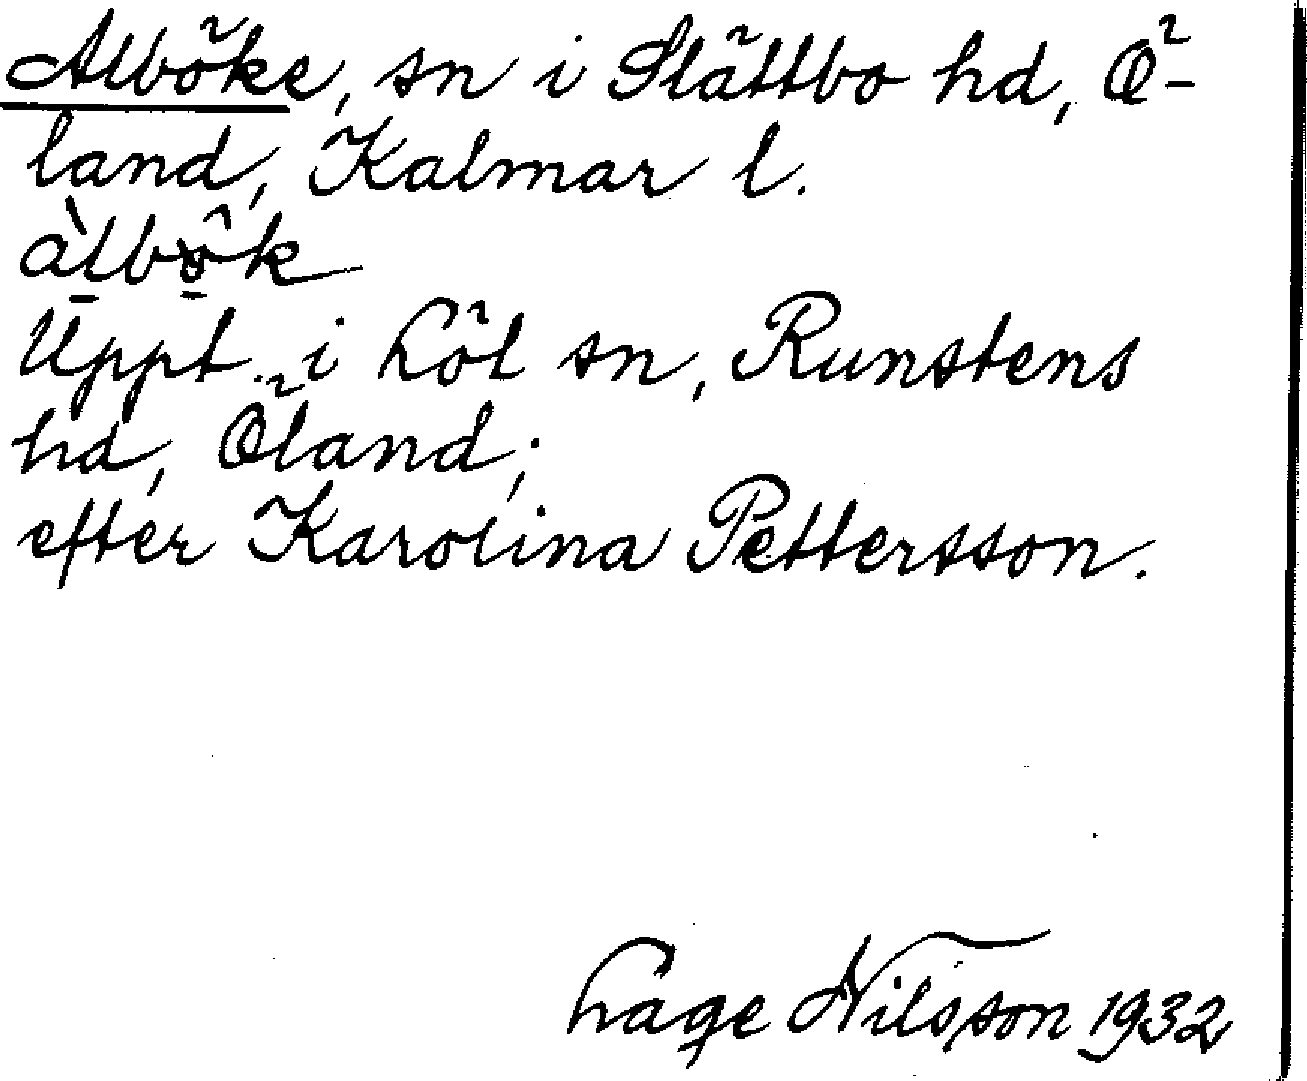 Alböke, sn i Slättbo hd, Ö-
land, Kalmar l.
àlbök
Uppt. i Löt sn, Runstens
hd, Öland;
efter Karolina Pettersson.
Lage Nilsson 1932